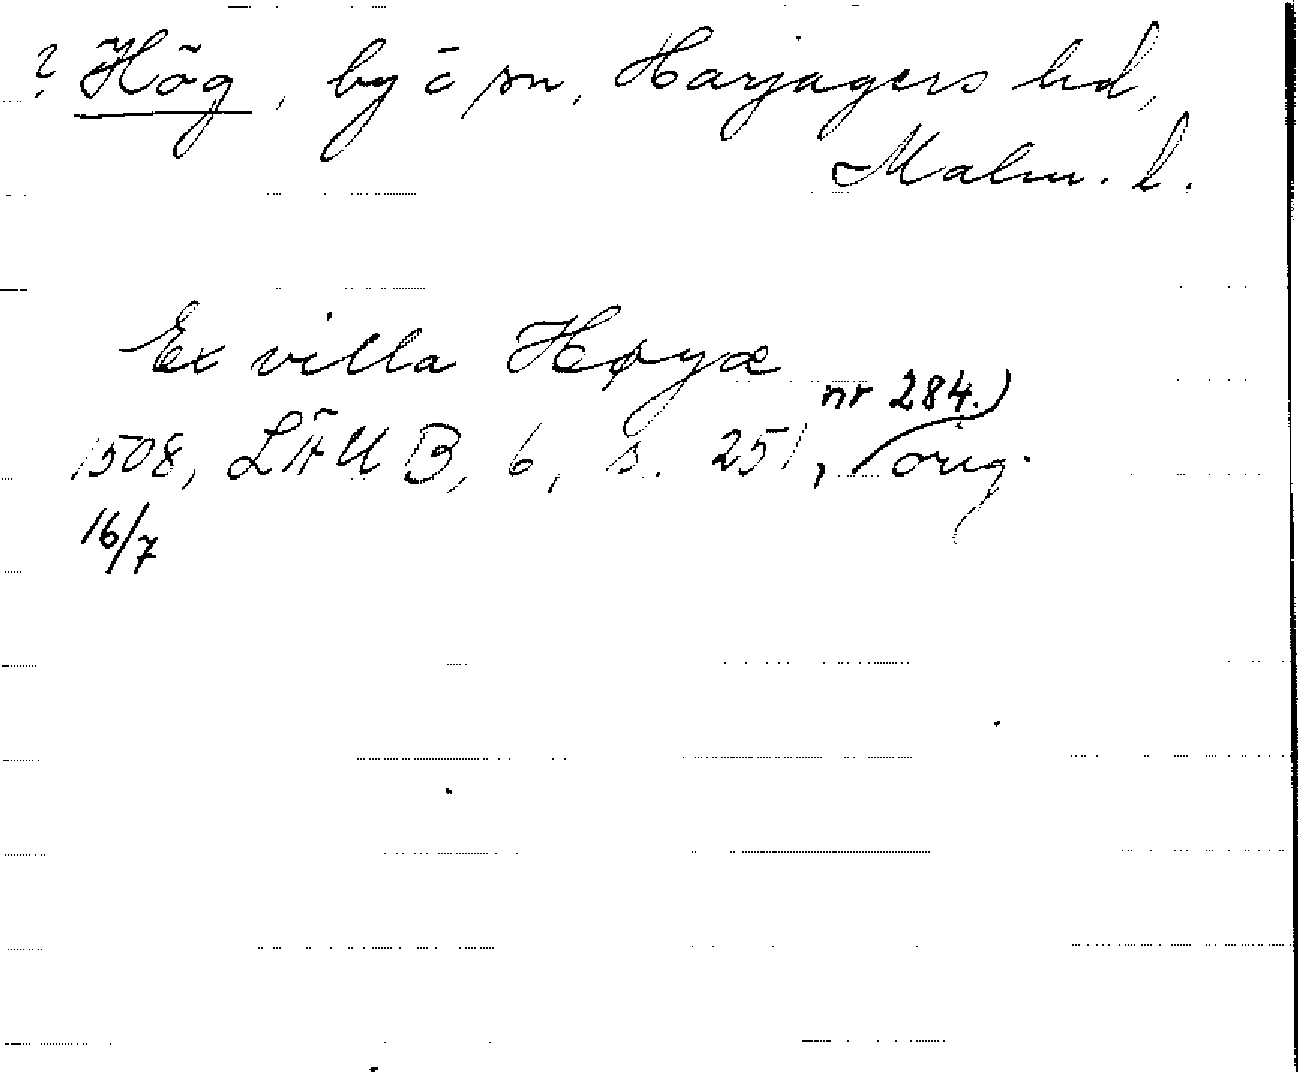 ? Hög, by o sn, Harjagers hd,
Malm. l.
Ex villa Høyæ
nr 284.)
1508, LÄUB, 6, s. 251, orig.
16/7